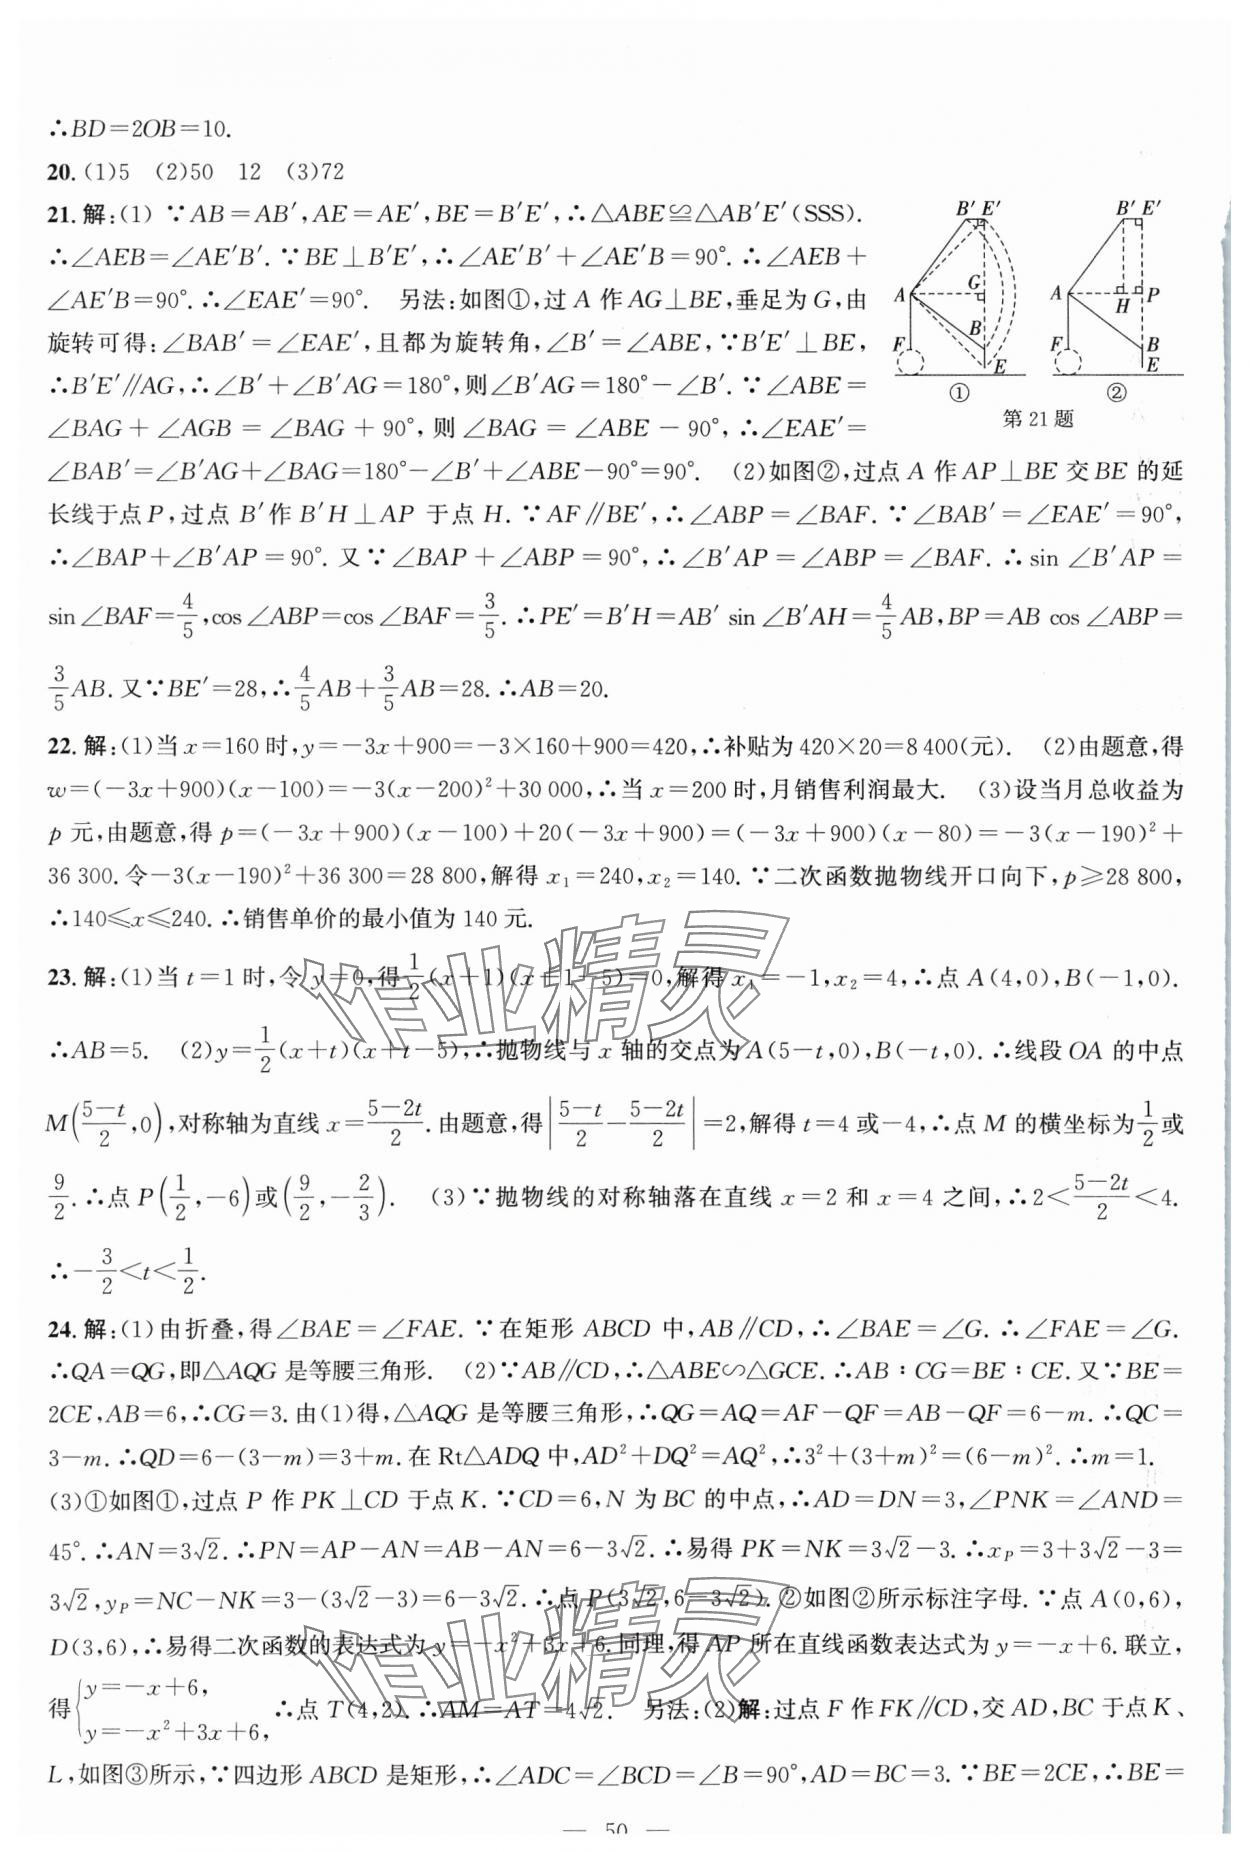 ∴BD=2OB=10.
20.(1)5 (2)50 12 (3)72
21.解:(1) ∵AB=AB′,AE=AE′,BE=B′E′,∴△ABE≌△AB′E′(SSS).
∴∠AEB=∠AE′B′.∵BE⊥B′E′,∴∠AE′B′+∠AE′B=90°.∴∠AEB+
∠AE′B=90°.∴∠EAE′=90°. 另法:如图①,过A作AG⊥BE,垂足为G,由
旋转可得:∠BAB′=∠EAE′,且都为旋转角,∠B′=∠ABE,∵B′E′⊥BE,
∴B′E′∥AG,∴∠B′+∠B′AG=180°,则∠B′AG=180°-∠B′.∵∠ABE=
∠BAG+∠AGB=∠BAG+90°,则∠BAG=∠ABE-90°,∴∠EAE′=
∠BAB′=∠B′AG+∠BAG=180°-∠B′+∠ABE-90°=90°. (2)如图②,过点A作AP⊥BE交BE的延
长线于点P,过点B′作B′H⊥AP于点H.∵AF∥BE′,∴∠ABP=∠BAF.∵∠BAB′=∠EAE′=90°,
∴∠BAP+∠B′AP=90°.又∵∠BAP+∠ABP=90°,∴∠B′AP=∠ABP=∠BAF.∴sin∠B′AP=
sin∠BAF=4/5,cos∠ABP=cos∠BAF=3/5.∴PE′=B′H=AB′sin∠B′AH=4/5AB,BP=AB cos∠ABP=
3/5AB.又∵BE′=28,∴4/5AB+3/5AB=28.∴AB=20.
B′ E′ A G F B E ①
B′ E′ A H P F B E ②
第21题
22.解:(1)当x=160时,y=-3x+900=-3×160+900=420,∴补贴为420×20=8 400(元). (2)由题意,得
w=(-3x+900)(x-100)=-3(x-200)²+30 000,∴当x=200时,月销售利润最大. (3)设当月总收益为
p元,由题意,得p=(-3x+900)(x-100)+20(-3x+900)=(-3x+900)(x-80)=-3(x-190)²+
36 300.令-3(x-190)²+36 300=28 800,解得x₁=240,x₂=140.∵二次函数抛物线开口向下,p≥28 800,
∴140≤x≤240.∴销售单价的最小值为140元.
23.解:(1)当t=1时,令y=0,得1/2(x+1)(x+1-5)=0,解得x₁=-1,x₂=4,∴点A(4,0),B(-1,0).
∴AB=5. (2)y=1/2(x+t)(x+t-5),∴抛物线与x轴的交点为A(5-t,0),B(-t,0).∴线段OA的中点
M((5-t)/2,0),对称轴为直线x=(5-2t)/2.由题意,得|(5-t)/2-(5-2t)/2|=2,解得t=4或-4,∴点M的横坐标为1/2或
9/2.∴点P(1/2,-6)或(9/2,-2/3). (3)∵抛物线的对称轴落在直线x=2和x=4之间,∴2<(5-2t)/2<4.
∴-3/2<t<1/2.
24.解:(1)由折叠,得∠BAE=∠FAE.∵在矩形ABCD中,AB∥CD,∴∠BAE=∠G.∴∠FAE=∠G.
∴QA=QG,即△AQG是等腰三角形. (2)∵AB∥CD,∴△ABE∽△GCE.∴AB∶CG=BE∶CE.又∵BE=
2CE,AB=6,∴CG=3.由(1)得,△AQG是等腰三角形,∴QG=AQ=AF-QF=AB-QF=6-m.∴QC=
3-m.∴QD=6-(3-m)=3+m.在Rt△ADQ中,AD²+DQ²=AQ²,∴3²+(3+m)²=(6-m)².∴m=1.
(3)①如图①,过点P作PK⊥CD于点K.∵CD=6,N为BC的中点,∴AD=DN=3,∠PNK=∠AND=
45°.∴AN=3√2.∴PN=AP-AN=AB-AN=6-3√2.∴易得PK=NK=3√2-3.∴x_P=3+3√2-3=
3√2,y_P=NC-NK=3-(3√2-3)=6-3√2.∴点P(3√2,6-3√2).②如图②所示标注字母.∵点A(0,6),
D(3,6),∴易得二次函数的表达式为y=-x²+3x+6.同理,得AP所在直线函数表达式为y=-x+6.联立,
得{y=-x+6, y=-x²+3x+6, ∴点T(4,2).∴AM=AT=4√2. 另法:(2)解:过点F作FK∥CD,交AD,BC于点K、
L,如图③所示,∵四边形ABCD是矩形,∴∠ADC=∠BCD=∠B=90°,AD=BC=3.∵BE=2CE,∴BE=
— 50 —
作业精灵
作业精灵